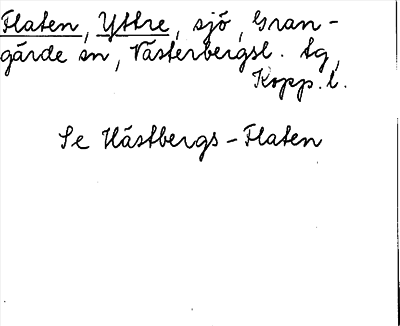 Flaten, Yttre, sjö, Gran-
gärde sn, Västerbergsl. tg,
Kopp. l.
Se Hästbergs-Flaten